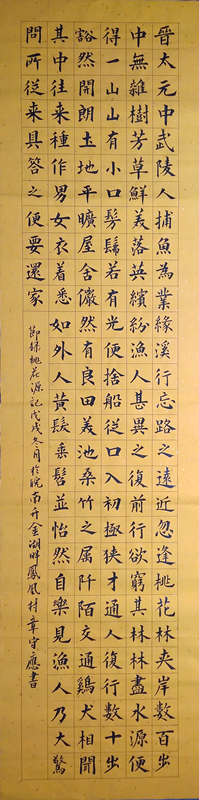 晉太元中武陵人捕魚為業緣溪行忘路之遠近忽逢桃花林夾岸數百步
中無雜樹芳草鮮美落英繽紛漁人甚異之復前行欲窮其林林盡水源便
得一山山有小口髣髴若有光便捨船從口入初極狹才通人復行數十步
豁然開朗土地平曠屋舍儼然有良田美池桑竹之属阡陌交通鷄犬相聞
其中往来種作男女衣着悉如外人黃髮垂髫並怡然自樂見漁人乃大驚
問所從来具答之便要還家
節錄桃花源記戊戌冬月於皖南升金湖畔鳳凰村章守應書